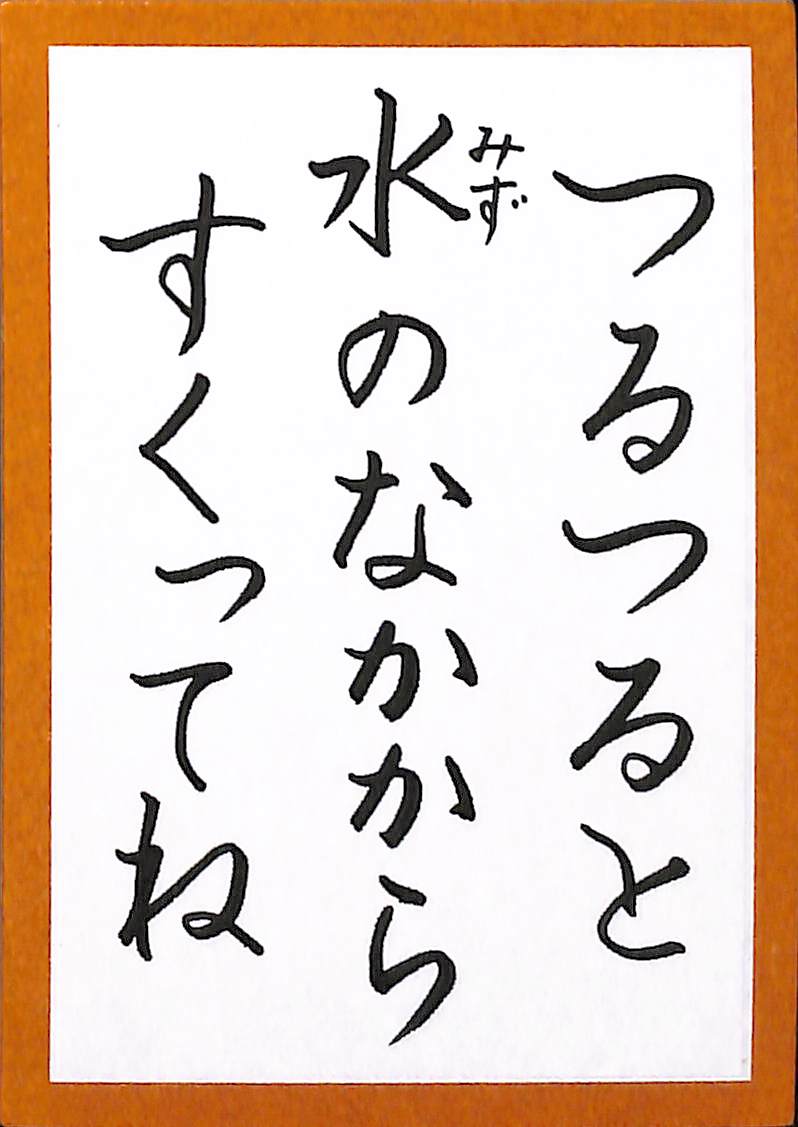 つるつると
水のなかから
みず
すくってね